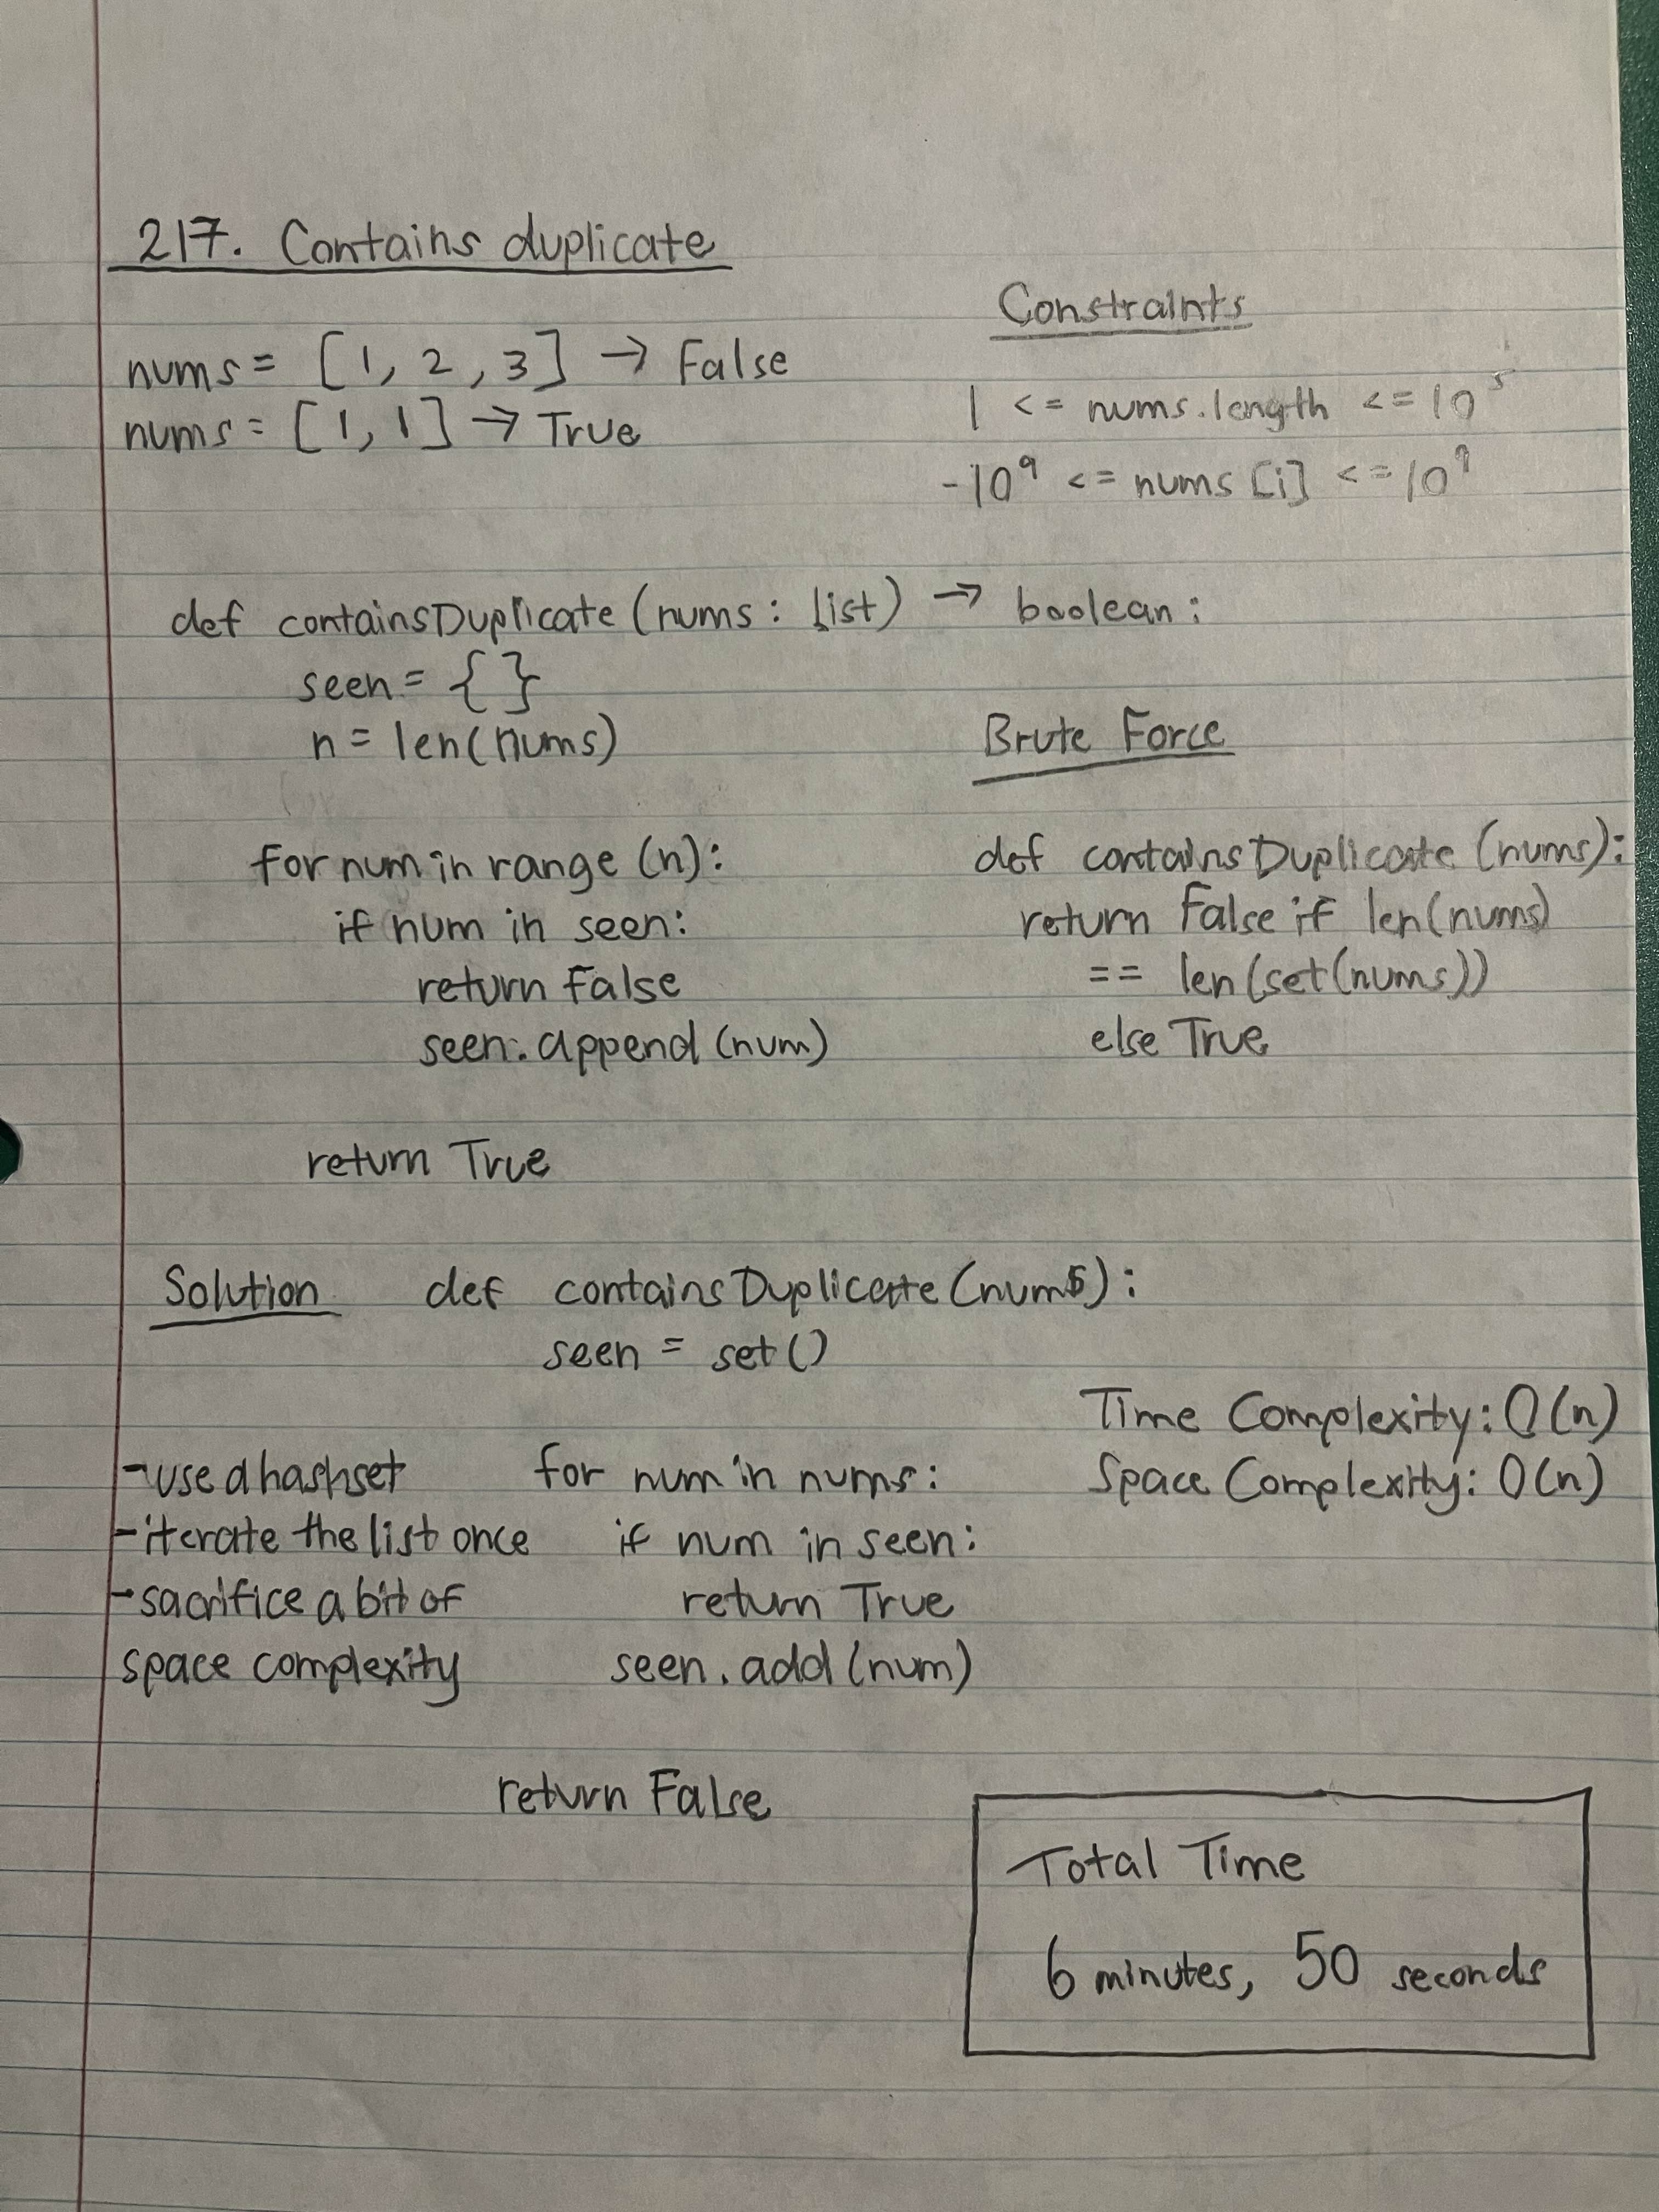 217. Contains duplicate
nums = [1, 2, 3] → False
nums = [1, 1] → True
Constraints
1 <= nums.length <= 10⁵
-10⁹ <= nums[i] <= 10⁹
def containsDuplicate(nums: list) → boolean:
seen = { }
n = len(nums)
for num in range (n):
if num in seen:
return False
seen.append(num)
return True
Brute Force
def containsDuplicate(nums):
return False if len(nums)
== len(set(nums))
else True
Solution
def containsDuplicate(nums):
seen = set()
for num in nums:
if num in seen:
return True
seen.add(num)
return False
-use a hashset
-iterate the list once
-sacrifice a bit of
space complexity
Time Complexity: O(n)
Space Complexity: O(n)
Total Time
6 minutes, 50 seconds